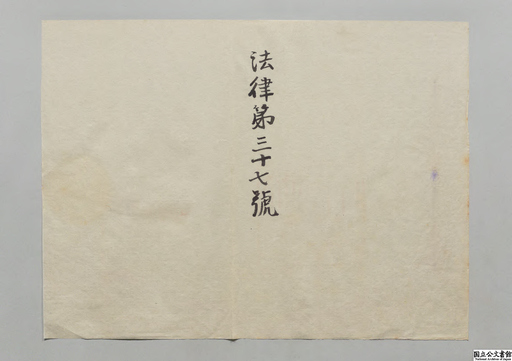 法律第三十七號
国立公文書館
National Archives of Japan